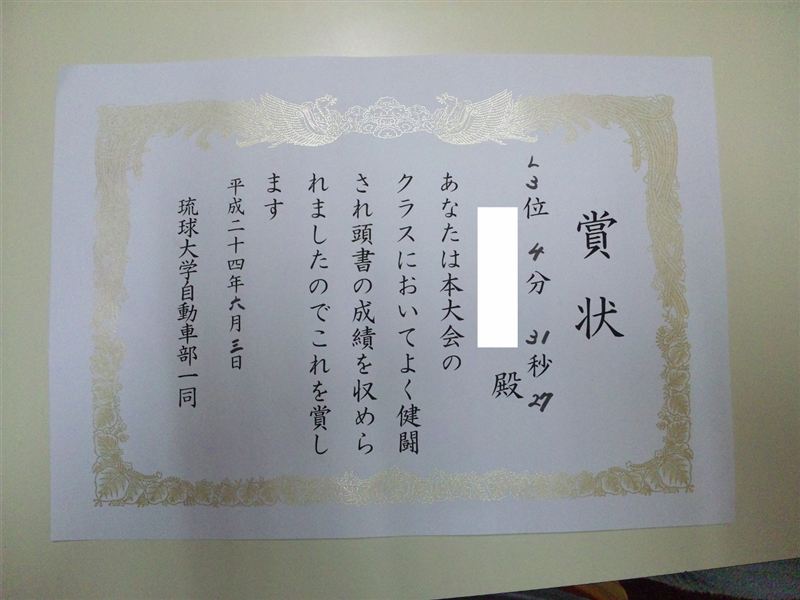 賞状
L3位 4分31秒27
殿
あなたは本大会の
クラスにおいてよく健闘
され頭書の成績を収めら
れましたのでこれを賞し
ます
平成二十四年六月三日
琉球大学自動車部一同